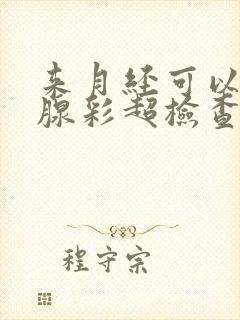 来月经可以
腺彩超檢查
程守宗